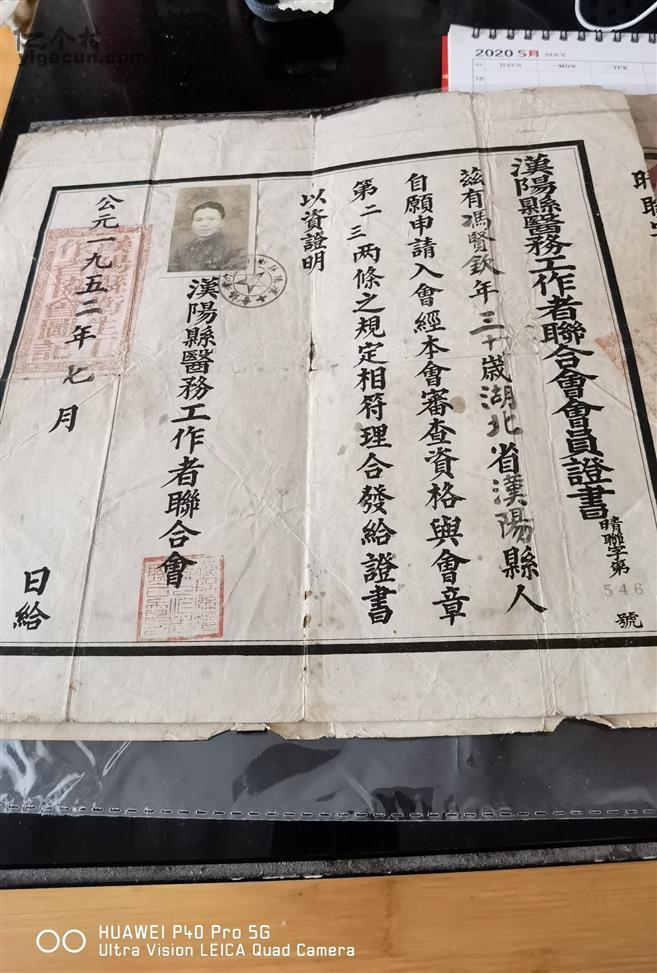 亿个村
yigecun.com
2020 5月 MAY
日SUN 一MON 二TUE
18
漢陽縣醫務工作者聯合會會員證書
晴聯字第
546
號
兹有馮賢欽年三十歲湖北省漢陽縣人
自願申請入會經本會審查資格與會章
第二三两條之規定相符理合發給證書
以資證明
漢陽縣醫務工作者聯合會
公元一九五二年七月
日給
HUAWEI P40 Pro 5G
Ultra Vision LEICA Quad Camera